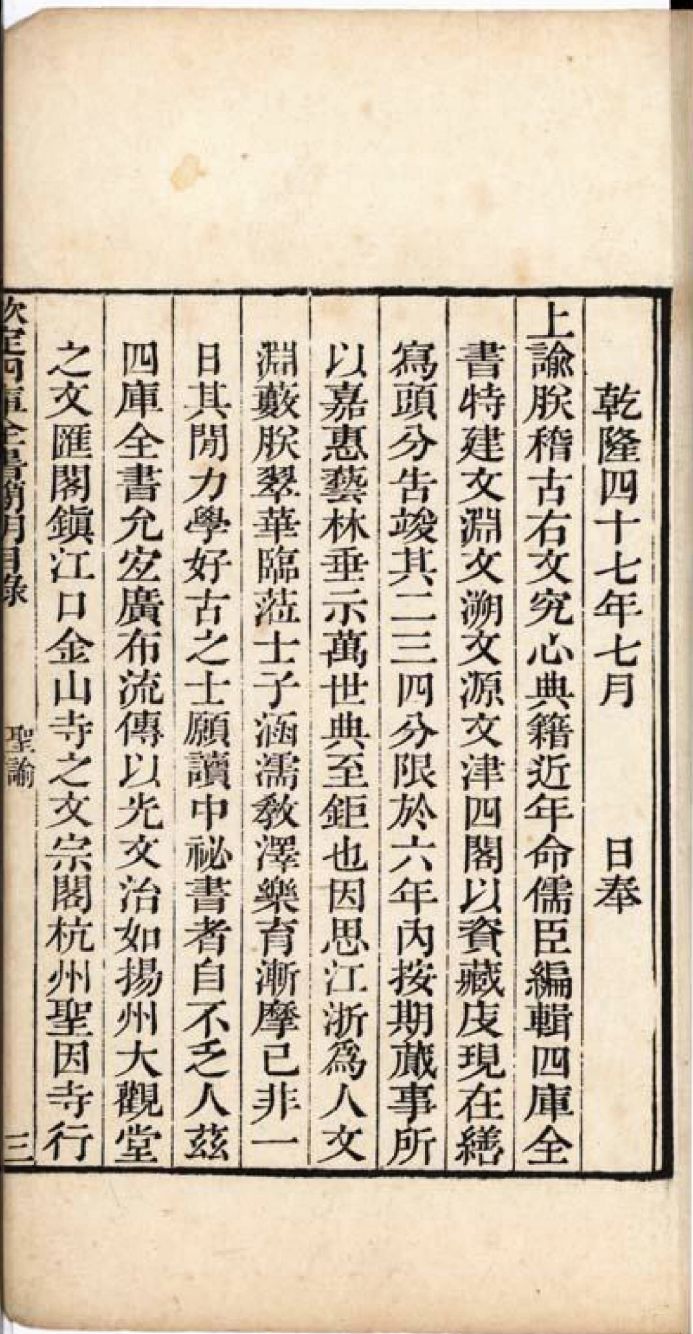 乾隆四十七年七月　　　日奉
上諭朕稽古右文究心典籍近年命儒臣編輯四庫全
書特建文淵文溯文源文津四閣以資藏庋現在繕
寫頭分告竣其二三四分限於六年內按期蕆事所
以嘉惠藝林垂示萬世典至鉅也因思江浙爲人文
淵藪朕翠華臨蒞士子涵濡敎澤樂育漸摩已非一
日其閒力學好古之士願讀中祕書者自不乏人茲
四庫全書允宐廣布流傳以光文治如揚州大觀堂
之文匯閣鎭江口金山寺之文宗閣杭州聖因寺行
欽定四庫全書簡明目錄　聖諭　三